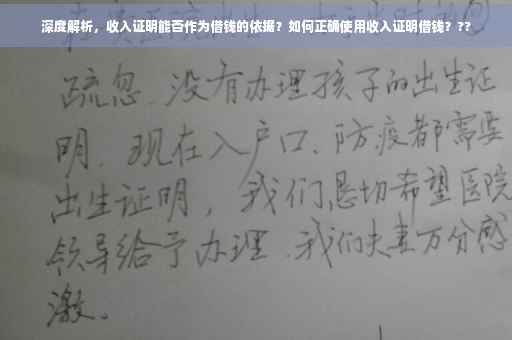 深度解析，收入证明能否作为借钱的依据？如何正确使用收入证明借钱？??
疏忽、没有办理孩子的出生证
明、现在入户口、防疫都需要
出生证明，我们恳切希望医院
领导给予办理、我们夫妻万分感
激。